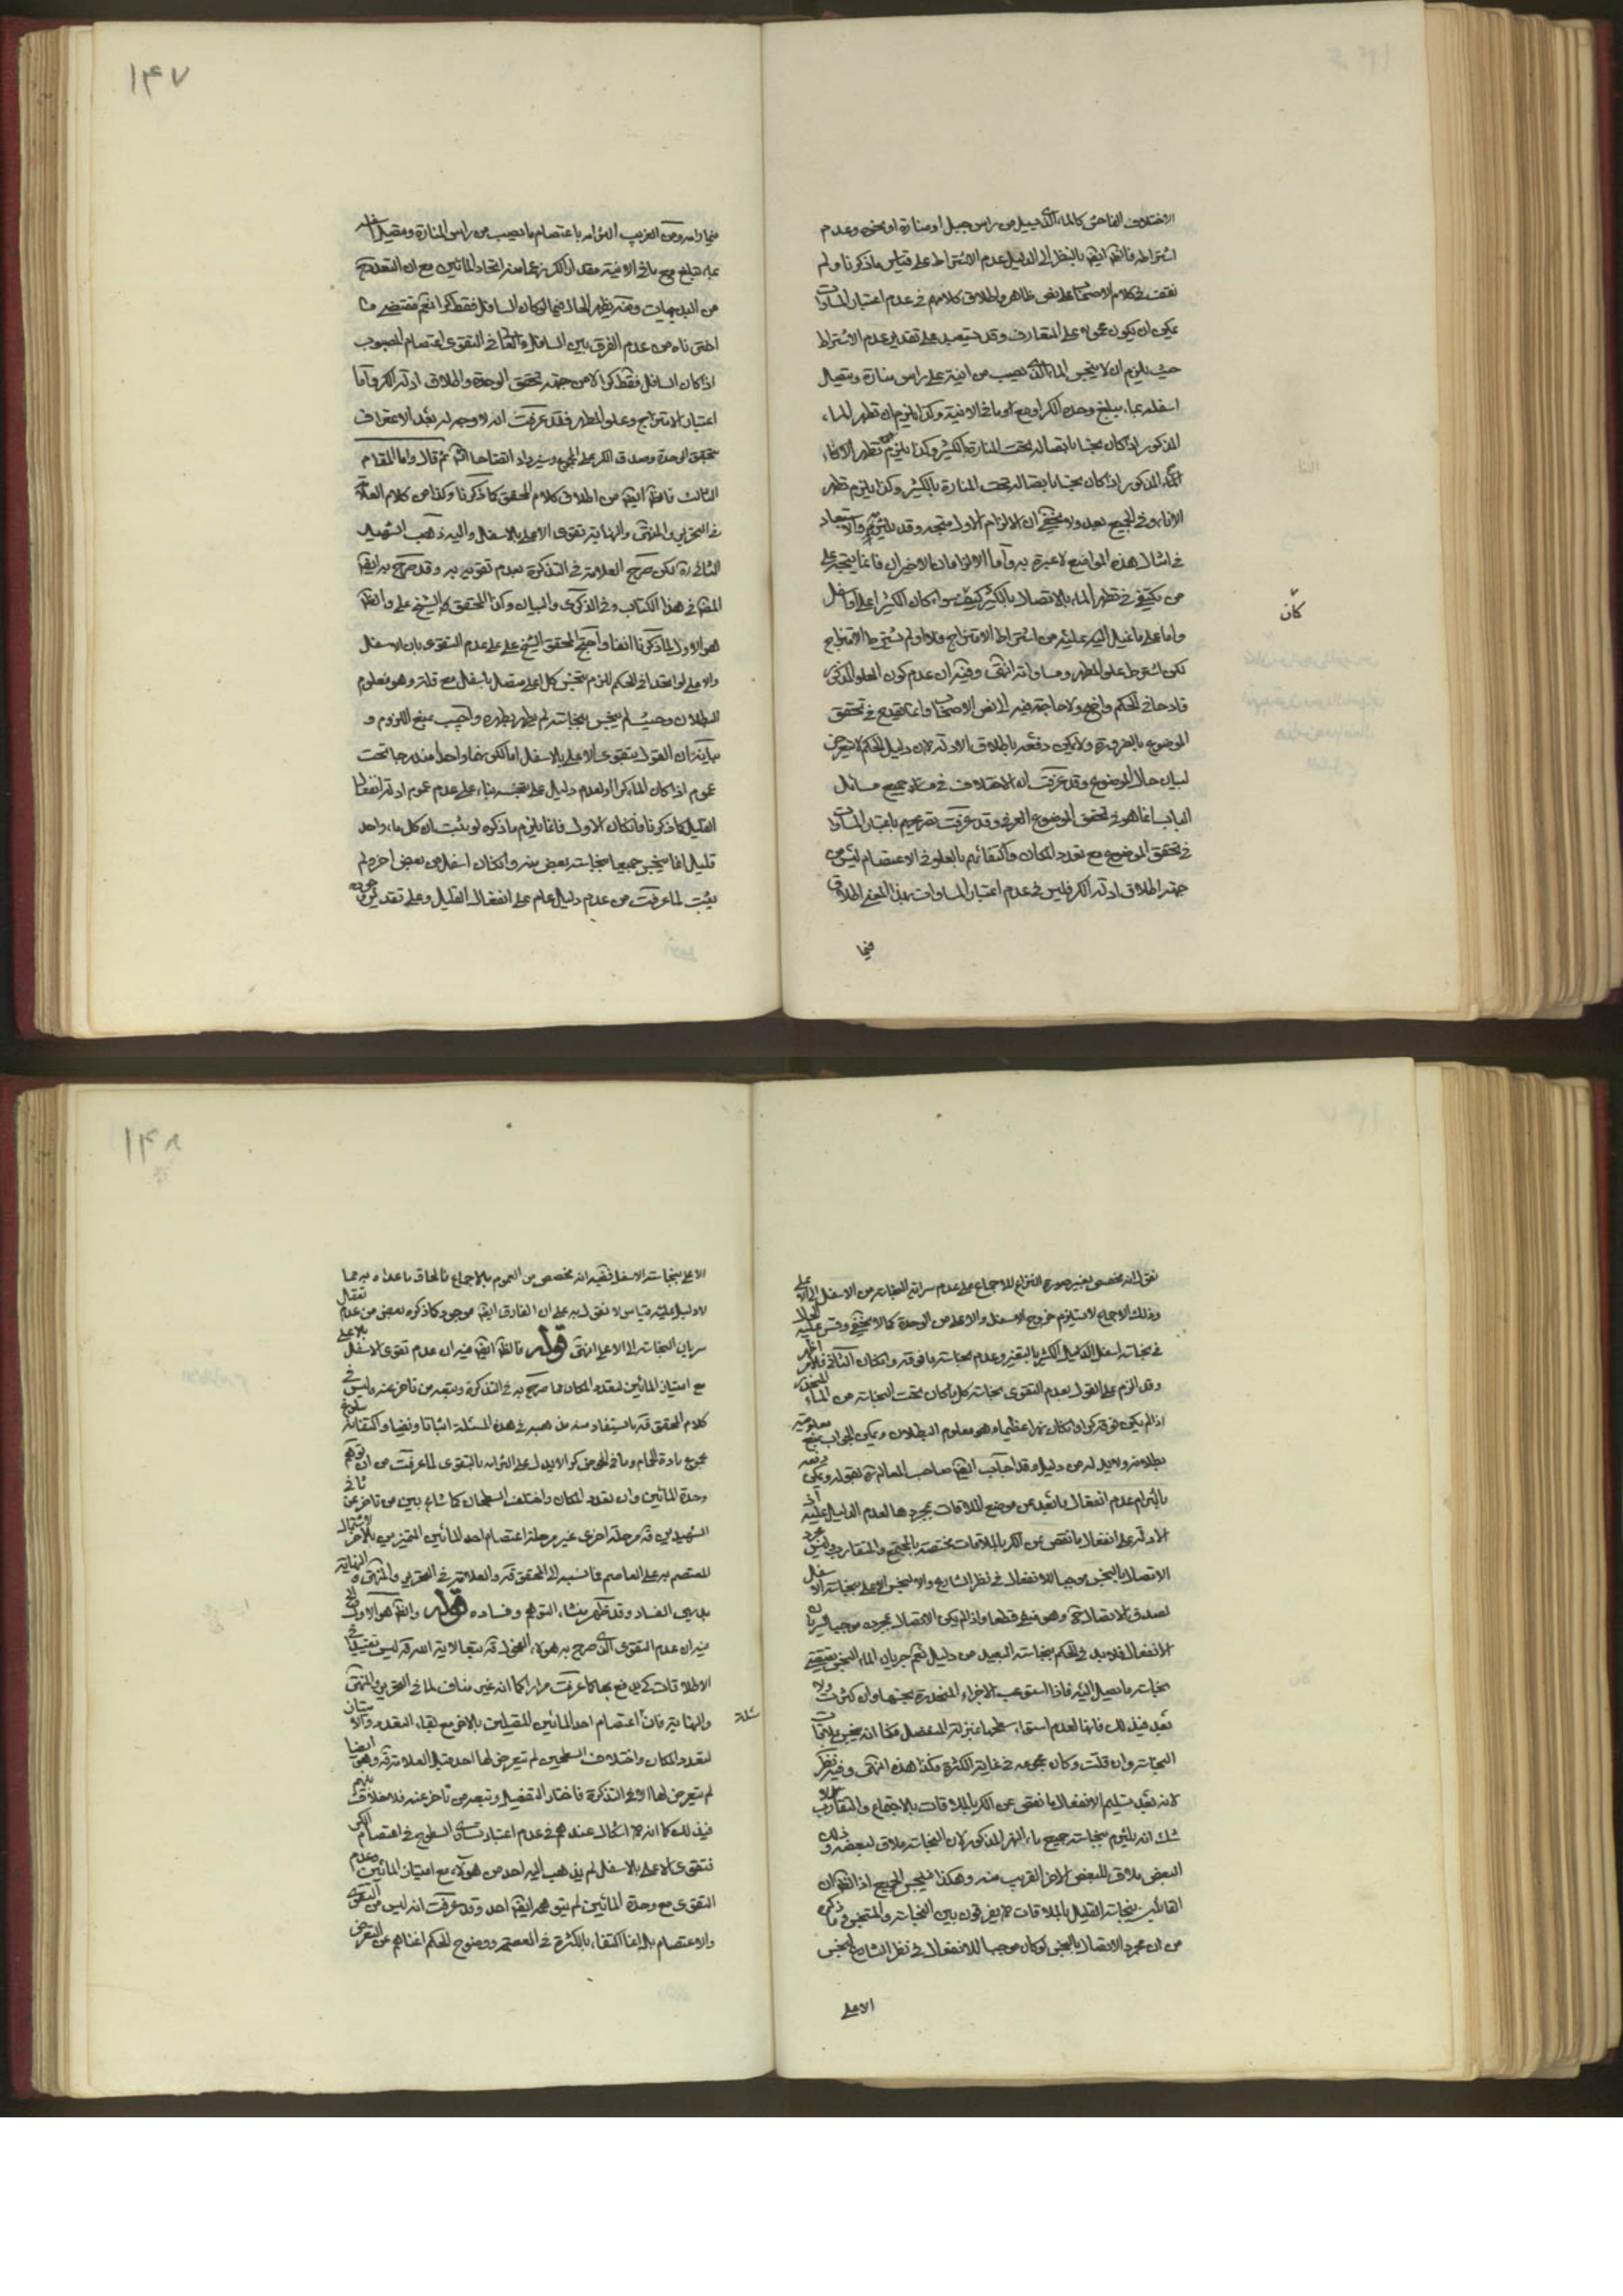 الاختلاف الفاحش كالماء الذى يسيل من راس جبل او منارة او نحوه وعدم
اشتراطه فالظ ايضا بالنظر الى الدليل عدم الاشتراط على قياس ما ذكرنا ولم
نقف فى كلام الاصحاب على نص ظاهر واطلاق كلامهم فى عدم اعتبار المساوات
يمكن ان يكون محمولا على المتعارف وقد يستبعد على تقدير عدم الاشتراط
حيث يلزم ان لا ينجس الماء الذى يصب من انية على راس منارة ويتصل
اسفله بماء يبلغ وحده الكر او مع ما فى الانية وكذا يلزم ان تطهر الماء
المذكور اذا كان نجسا باتصاله تحت المنارة بالكثير وكذا يلزم تطهر الاناء
المذكور اذا كان نجسا باتصاله تحت المنارة بالكثير وكذا يلزم تطهر
الاناء وفى الجميع بعد ولا يخفى ان الالزام الاول متجه وقد يلتزم والاستبعاد
فى امثال هذه المواضع لا عبرة به واما الالزامان الاخيران فانما يتجه على
من يكتفى فى تطهر الماء بالاتصال بالكثير كيف كان سواء كان الكثير اعلى او اسفل
كان
واما على ما نميل اليه من اشتراط الامتزاج فلا ولو لم يشترط الامتزاج
لكن اشترط علو المطهر ومساواته انتهى وفيه ان عدم كون العلو المذكور
قادحا فى الحكم واضح ولا حاجة فيه الى نص الاصحاب وانما يقدح فى تحقق
الموضوع بالضرورة ولا يمكن دفعه باطلاق الادلة لان دليل الحكم لا يتعرض
لبيان حال الموضوع وقد عرفت ان الاختلاف فى جميع مسائل
الباب انما هو فى تحقق الموضوع العرفى وقد عرفت تصريحهم باعتبار المساوات
فى تحقق الموضوع مع تعدد المكان واكتفائهم بالعلو فى الاعتصام ليس من
جهة اطلاق ادلة الكر فليس فى عدم اعتبار المساوات بهذا المعنى اطلاق
فيما
١۴٧
عليه تبلغ مع ما فى الانية مقدار الكر زعما منه اتحاد المائين مع ان التعدد
من البديهيات ومنه يظهر الحال فيما لو كان السافل فقط كرا نعم مقتضى ما
اخترناه من عدم الفرق بين السافل والعالى فى التقوى اعتصام المصبوب
اذا كان السافل فقط كرا لا من جهة تحقق الوحدة واطلاق ادلة الكر واما
اعتبار الامتزاج وعلو المطهر فقد عرفت انه لا وجه له بعد الاعتراف
بتحقق الوحدة وصدق الكر على المجموع وسيزداد اتضاحا انش ثم قال واما المقام
الثالث فالظ ايضا من اطلاق كلام المحقق كما ذكرنا وكذا من كلام العلامة
فى التحرير والمنتهى والنهاية تقوى الاعلى بالاسفل واليه ذهب الشهيد
الثانى ره لكن صرح العلامة فى التذكرة بعدم تقويه به وقد صرح به ايضا
المص فى هذا الكتاب وفى الذكرى والبيان وكذا المحقق الشيخ على والظ
هو الاول لما ذكرنا انفا واحتج المحقق الشيخ على على عدم التقوى بان الاسفل
والاعلى لو اتحدا فى الحكم للزم تنجس كل اعلى متصل باسفل مع قلته وهو معلوم
البطلان وحيث لم ينجس بنجاسته لم يطهر بطهره واجيب بمنع اللزوم و
بيانه ان القول بتقوى الاعلى بالاسفل اما لكونهما واحدا مندرجا تحت
عموم اذا كان الماء كرا او لعدم دليل على تنجسه بناء على عدم عموم ادلة انفعال
القليل كما ذكرنا فان كان الاول فانما يلزم ما ذكره لو ثبت ان كل ماء واحد
قليل انما ينجس جميعا بنجاسة بعض منه وان كان اسفل من بعض اخر ولم
يثبت لما عرفت من عدم دليل عام على انفعال القليل وعلى تقدير وجوده
نقول انه مخصص بغير صورة النزاع للاجماع على عدم سراية النجاسة من الاسفل الى الاعلى
وذلك الاجماع لا يستلزم خروج الاسفل والاعلى من الوحدة كما لا يخفى وقس عليه الحال
فى نجاسة اسفل الكثير بالتغير وعدم نجاسة ما فوقه وان كان الثانى فالامر اظهر
وقد الزم على القول بعدم التقوى نجاسة كل ما كان تحت النجاسة من الماء المنحدر
اذا لم يكن فوقه كر وان كان نهرا عظيما وهو معلوم البطلان ويمكن الجواب بمنع معلومية
بطلانه ولابد له من دليل وقد اجاب ايضا صاحب المعالم ره بقوله ويمكن دفعه
بالتزام عدم انفعال ما بعد عن موضع الملاقات بمجردها لعدم الدليل عليه اذ
الادلة على انفعال ما نقص عن الكر بالملاقات مختصة بالمجتمع والمتقارب وليس مجرد
الاتصال بالنجس موجبا للانفعال فى نظر الشارع والا لنجس الاعلى بنجاسة الاسفل
لصدق الاتصال ح وهو منفى قطعا واذا لم يكن الاتصال بمجرده موجبا لسريان
الانفعال فلابد فى الحكم بنجاسة البعيد من دليل نعم جريان الماء النجس يقتضى
نجاسة ما يصل اليه فاذا استوعب الاجزاء المنحدرة نجسها وان كثرت ولا
بعد فى ذلك فانها لعدم استواء سطحها بمنزلة المنفصل فكما انه ينجس بملاقات
النجاسة وان قلت وكان مجموعه فى غاية الكثرة فكذا هذه انتهى وفيه نظر
لانه بعد تسليم الانفعال ما نقص عن الكر بالملاقات بالاجتماع والتقارب لا
شك انه يلتزم بنجاسة جميع ماء النهر المذكور لان النجاسة ملاق لبعضه وذلك
البعض ملاق للبعض الاخر القريب منه وهكذا فينجس الجميع اذ الظ ان
القائلين بنجاسة القليل بالملاقات لا يفرقون بين النجاسة والمتنجس وما ذكره
من ان مجرد الاتصال بالنجس لو كان موجبا للانفعال فى نظر الشارع لنجس
الاعلى
١۴٨
الاعلى بنجاسة الاسفل ففيه انه مخصص من العموم بالاجماع فالحاق ما عداه به مما
لا دليل عليه قياس لا نقول به على ان الفارق ايضا موجود كما ذكره بعض من عدم تعقل
سريان النجاسة الى الاعلى انتهى قوله فالظ ايضا فيه ان عدم تقوى الاسفل بالاعلى
مع امتياز المائين لتعدد المكان مما صرح به فى التذكرة وتبعه من تاخر عنه وليس فى
كلام المحقق قه ما يستفاد منه مذهبه فى هذه المسئلة اثباتا ونفيا واكتفائه ببلوغ
مجموع مادة الحمام وما فى الحوض كرا لا يدل على التزامه بالتقوى لما عرفت من ان توهم
وحدة المائين وان تعدد المكان واختلف السطحان كما شاع بين من تاخر عن ثانى
الشهيدين قه مرحلة اخرى غير مرحلة اعتصام احد المائين المتميزين بالاخر لاشتمال
المعتصم به على العاصم فما نسبه الى المحقق قه والعلامة فى التحرير والمنتهى والنهاية
بديهى الفساد وقد ظهر منشاء التوهم وفساده قوله والظ هو الاول الخ
فيه ان عدم التقوى الذى صرح به هؤلاء الفحول قه تبعا لاية الله قه ليس تقييدا فى
الاطلاقات كى يدفع بها كما عرفت مرارا كما انه غير مناف لما فى التحرير والمنتهى
والنهاية فان مسئلة اعتصام احد المائين المتصلين بالاخر مع بقاء التعدد والامتياز
لتعدد المكان واختلاف السطحين لم يتعرض لها احد قبل العلامة قه وهو ايضا
لم يتعرض لها الا فى التذكرة فاختار التفصيل وتبعه من تاخر عنه فلا خلاف بينهم
فى ذلك كما انه لا اشكال عندهم فى عدم اعتبار تساوى السطوح فى اعتصام الكر
فتقوى الاعلى بالاسفل لم يذهب اليه احد من هؤلاء مع امتياز المائين وعدم
التقوى مع وحدة المائين لم يتوهمه ايضا احد وقد عرفت انه ليس من التقوى
والاعتصام بل انما اكتفاء بالكثرة فى العصمة ووضوح الحكم اغناهم عن التعرض